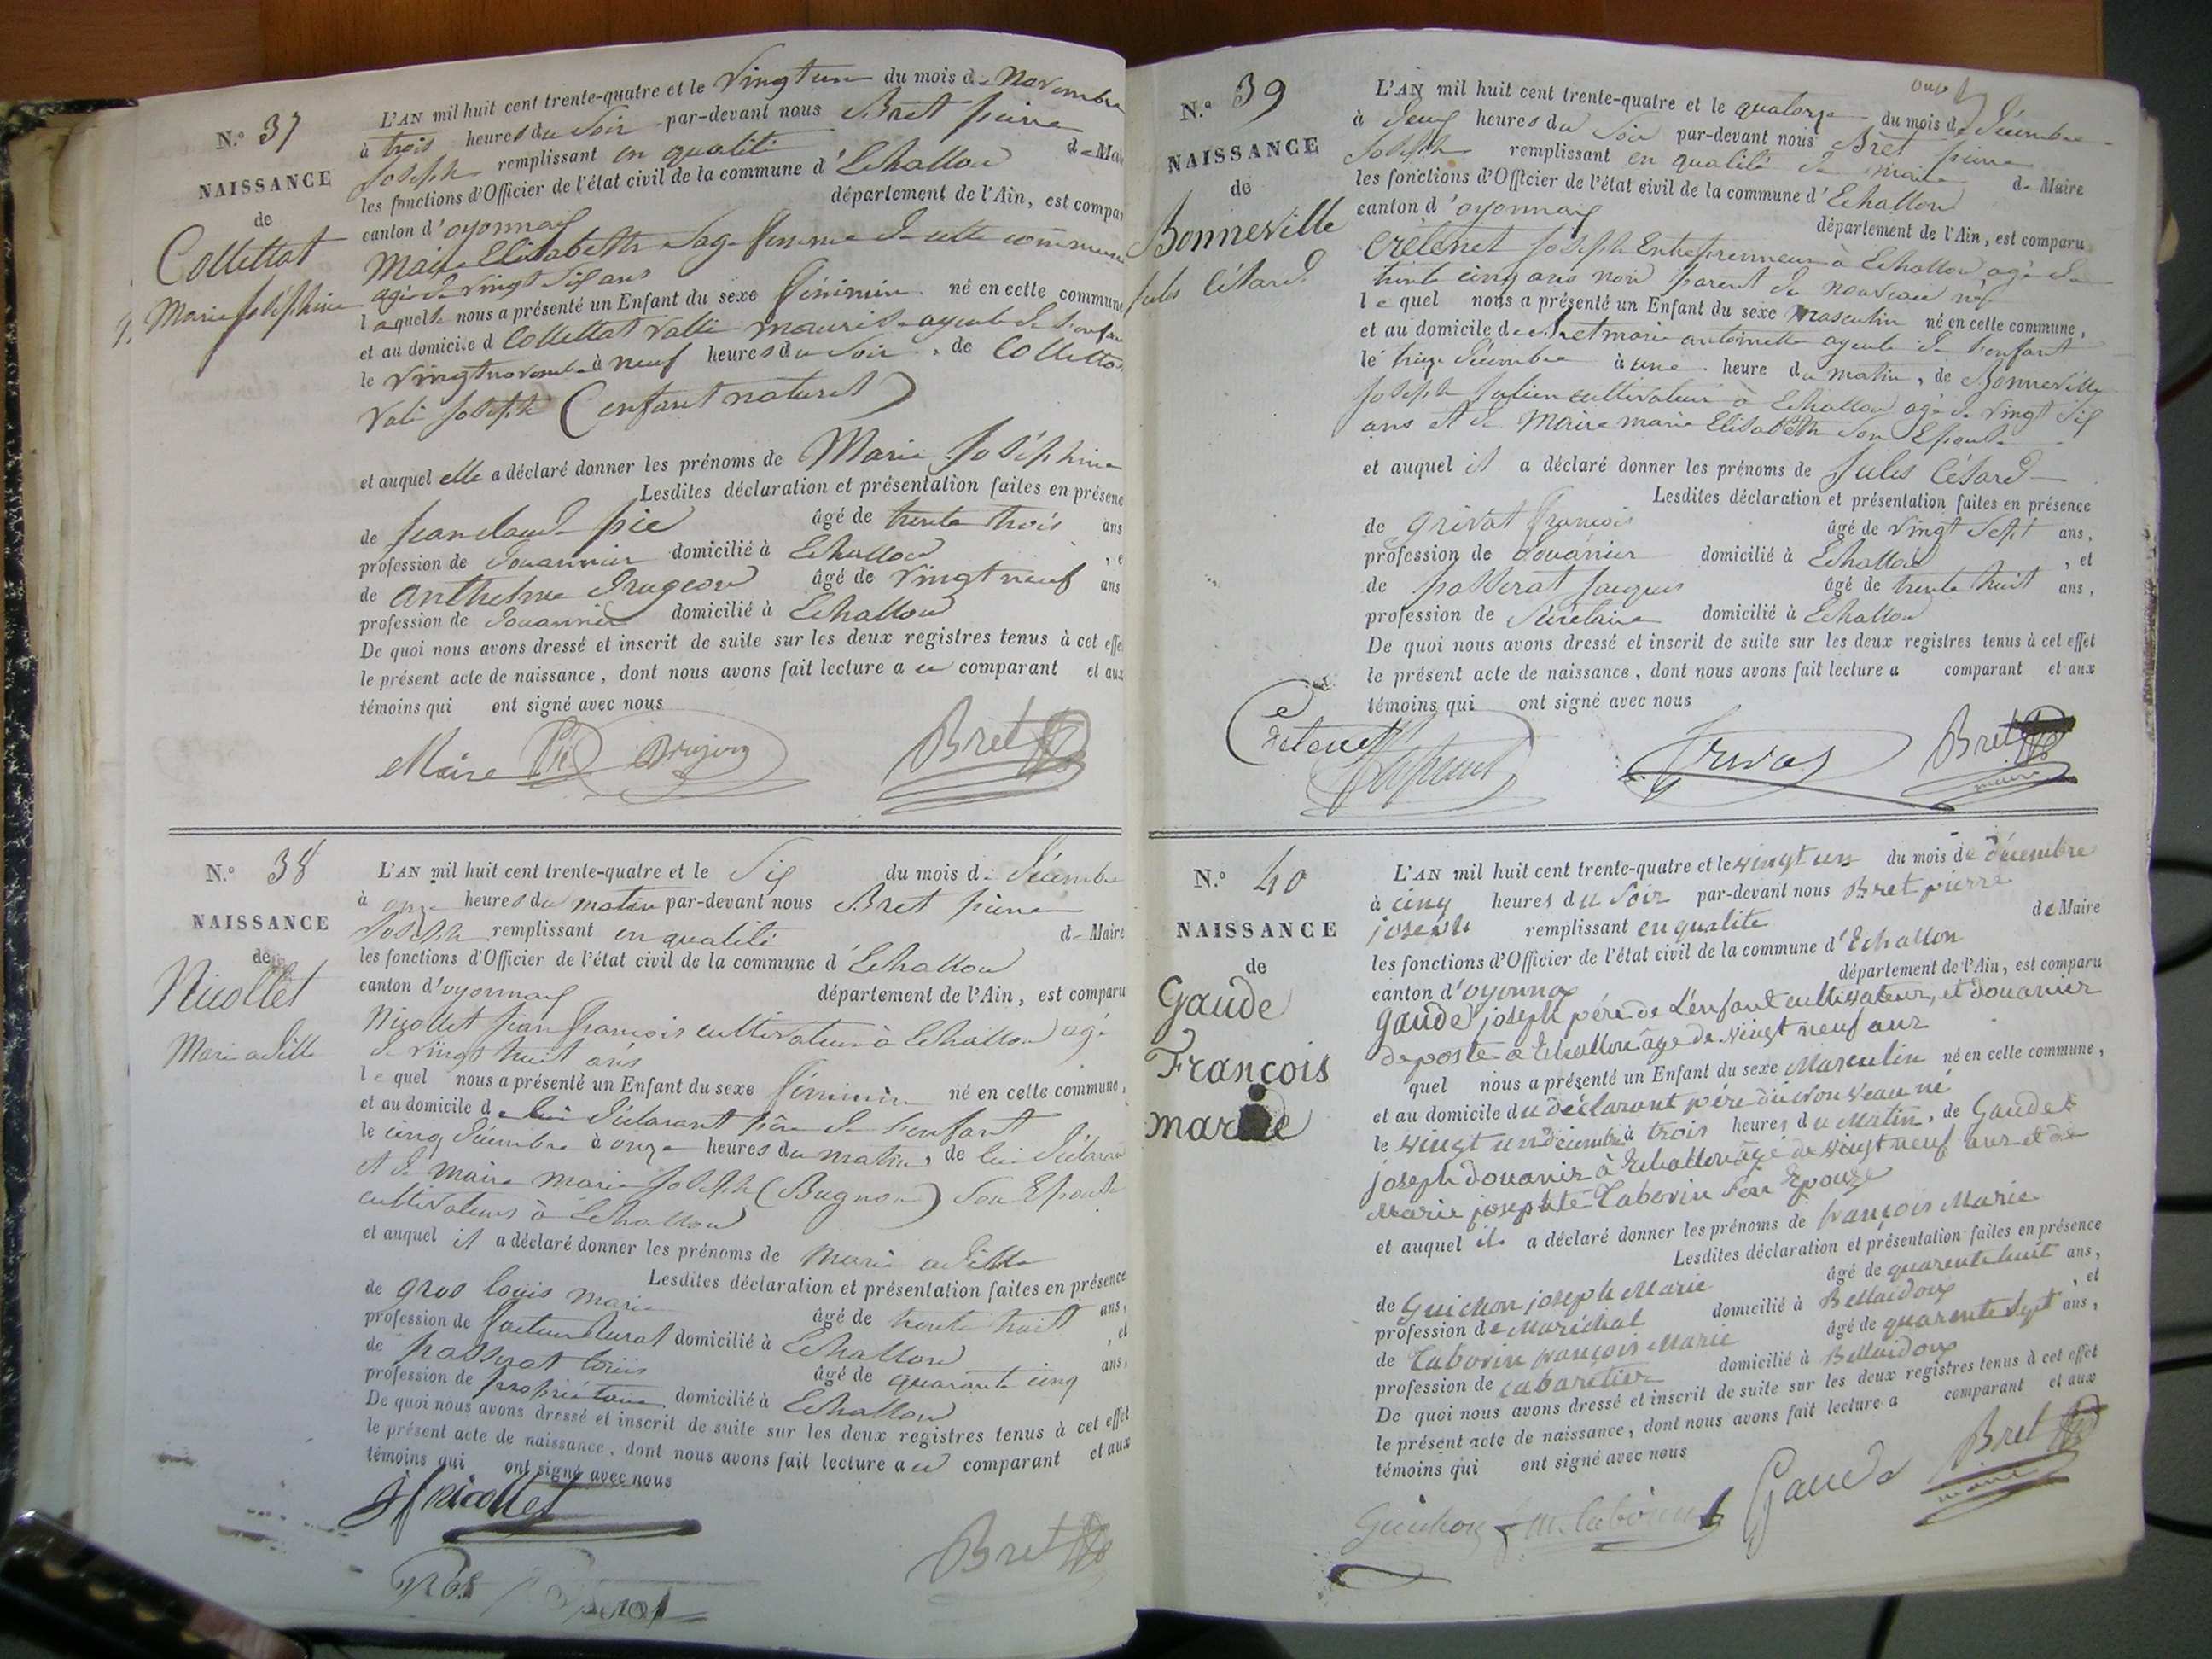 N.° 37
NAISSANCE
de
Collettat
Marie Joséphine
L'AN mil huit cent trente-quatre et le Vingt un du mois de Novembre
à trois heures du Soir par-devant nous Bret pierre
Joseph remplissant en qualité de Mai
les fonctions d'Officier de l'état civil de la commune d'Echallon
canton d'oyonnax département de l'Ain, est compar
Maire Elisabeth Sage femme de cette commune
agée de vingt six ans
laquelle nous a présenté un Enfant du sexe féminin né en cette commune
et au domicile d Collettat Valli mauris ayeule de l'enfan
le vingt novembre à neuf heures du Soir, de Colletta
Vali Joseph (enfant naturel)
et auquel elle a déclaré donner les prénoms de Marie Joséphine
Lesdites déclaration et présentation faites en présenc
de Jean claude pic âgé de trente trois ans
profession de Douannier domicilié à Echallon, e
de Anthelme Drugeon âgé de Vingt neuf ans
profession de Douannier domicilié à Echallon
De quoi nous avons dressé et inscrit de suite sur les deux registres tenus à cet effe
le présent acte de naissance, dont nous avons fait lecture a ce comparant et aux
témoins qui ont signé avec nous
Maire Pic Drujon Bret
N.° 38
NAISSANCE
de
Nicollet
Marie adille
L'AN mil huit cent trente-quatre et le Six du mois de Décembre
à onze heures du matin par-devant nous Bret pierre
Joseph remplissant en qualité de Maire
les fonctions d'Officier de l'état civil de la commune d'Echallon
canton d'oyonnax département de l'Ain, est comparu
Nicollet Jean françois cultivateur à Echallon agé
de vingt huit ans
lequel nous a présenté un Enfant du sexe féminin né en cette commune,
et au domicile de lui déclarant père de l'enfant
le cinq décembre à onze heures du matin, de lui déclaran
et de Maire marie Joseph (Bugnon) Son Epouse
cultivateurs à Echallon
et auquel il a déclaré donner les prénoms de Marie adille
Lesdites déclaration et présentation faites en présence
de gros louis marie âgé de trente huit ans,
profession de facteur Rural domicilié à Echallon, et
de passerat louis âgé de quarante cinq ans,
profession de propriétaire domicilié à Echallon
De quoi nous avons dressé et inscrit de suite sur les deux registres tenus à cet effet
le présent acte de naissance, dont nous avons fait lecture a ce comparant et aux
témoins qui ont signé avec nous
Jf nicollet
Gros Passerat Bret
N.° 39
NAISSANCE
de
Bonneville
Jules César
L'AN mil huit cent trente-quatre et le quatorze du mois de Décembre
à Deux heures du Soir par-devant nous Bret pierre
Joseph remplissant en qualité de maire de Maire
les fonctions d'Officier de l'état civil de la commune d'Echallon
canton d'oyonnax département de l'Ain, est comparu
Crétenet Joseph Entreprenneur à Echallon agé de
trente cinq ans non parent du nouveau né
lequel nous a présenté un Enfant du sexe Masculin né en cette commune,
et au domicile de Bret marie antoinette ayeule de l'enfant
le treize Décembre à une heure du matin, de Bonneville
Joseph Julien cultivateur à Echallon agé de vingt Six
ans et de Maire marie Elisabeth Son Epouse
et auquel il a déclaré donner les prénoms de Jules César
Lesdites déclaration et présentation faites en présence
de grivat françois âgé de vingt Sept ans,
profession de Douanier domicilié à Echallon, et
de passerat Jacques âgé de trente huit ans,
profession de Sécrétaire domicilié à Echallon
De quoi nous avons dressé et inscrit de suite sur les deux registres tenus à cet effet
le présent acte de naissance, dont nous avons fait lecture a comparant et aux
témoins qui ont signé avec nous
Bret
maire
N.° 40
NAISSANCE
de
Gaude
François
marie
L'AN mil huit cent trente-quatre et le vingt un du mois de décembre
à cinq heures du Soir par-devant nous Bret pierre
joseph remplissant en qualité de Maire
les fonctions d'Officier de l'état civil de la commune d'Echallon
canton d'oyonnax département de l'Ain, est comparu
Gaude joseph père de L'enfant cultivateur, et douanier
de poste à Echallon âge de vingt neuf ans
quel nous a présenté un Enfant du sexe Masculin né en cette commune,
et au domicile du déclarant père du Nouveau né
le vingt un décembre à trois heures du Matin, de Gaude
joseph douanir à Echallon âgé de vingt neuf ans et de
Marie josephte Taborin Son Epouze
et auquel il a déclaré donner les prénoms de françois Marie
Lesdites déclaration et présentation faites en présence
de Guichon joseph Marie âgé de quarente huit ans,
profession de Maréchal domicilié à Bellaidoux, et
de Taborin françois Marie âgé de quarente Sept ans,
profession de cabaretier domicilié à Bellaidoux
De quoi nous avons dressé et inscrit de suite sur les deux registres tenus à cet effet
le présent acte de naissance, dont nous avons fait lecture a comparant et aux
témoins qui ont signé avec nous
Guichon Gaude Bret
maire